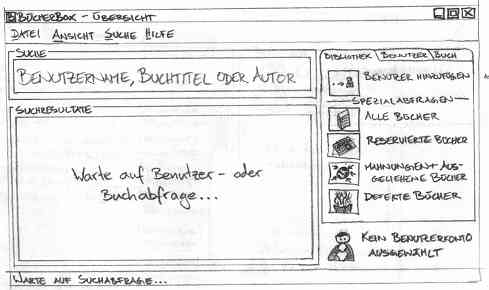 BücherBox - Übersicht
Datei Ansicht Suche Hilfe
Suche
Benutzername, Buchtitel oder Autor
Suchresultate
Warte auf Benutzer- oder
Buchabfrage...
Bibliothek Benutzer Buch
Benutzer hinzufügen
Spezialabfragen
Alle Bücher
Reservierte Bücher
Mahnungen+Aus-
geliehene Bücher
Defekte Bücher
Kein Benutzerkonto
ausgewählt
Warte auf Suchabfrage...